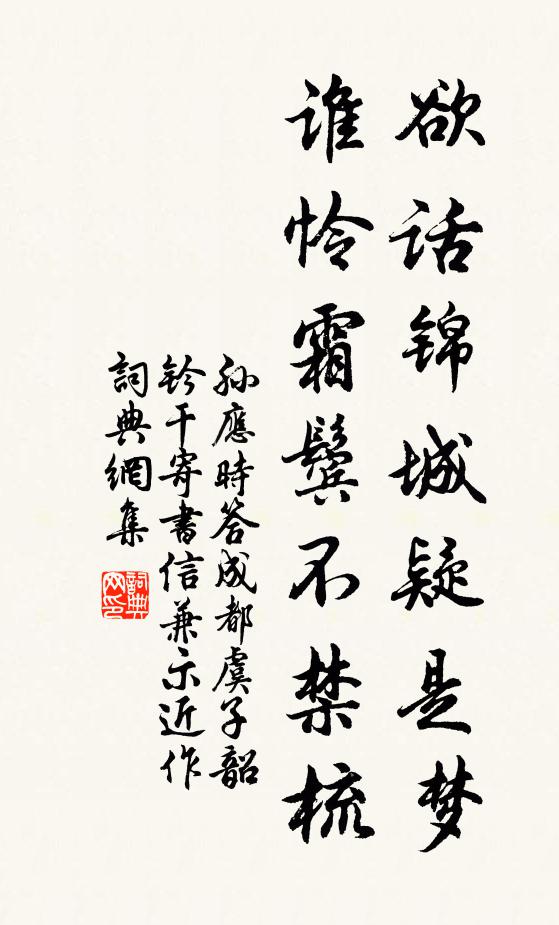 欲话锦城疑是梦
谁怜霜鬓不禁梳
孙應時答成都虞子韶
鈐干寄書信兼示近作
詞典網集
詞典网印